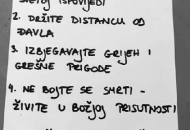 SVETOJ ISPOVIJEDI
2. DRŽITE DISTANCU OD
DAVLA
3. IZBJEGAVAJTE GRIJEH I
GREŠNE PRIGODE
4. NE BOJTE SE SMRTI -
ŽIVITE U BOŽJOJ PRISUTNOSTI